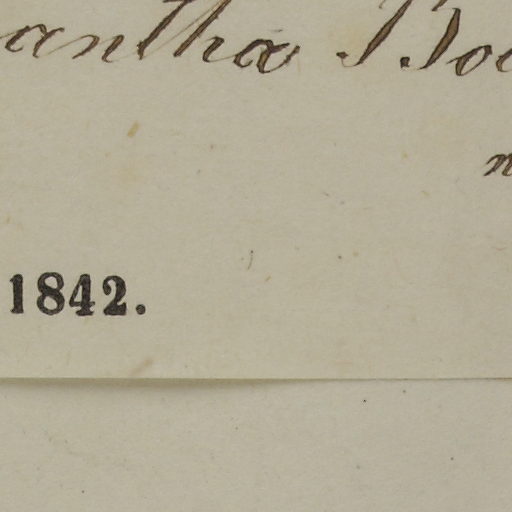 antha Bo
1842.